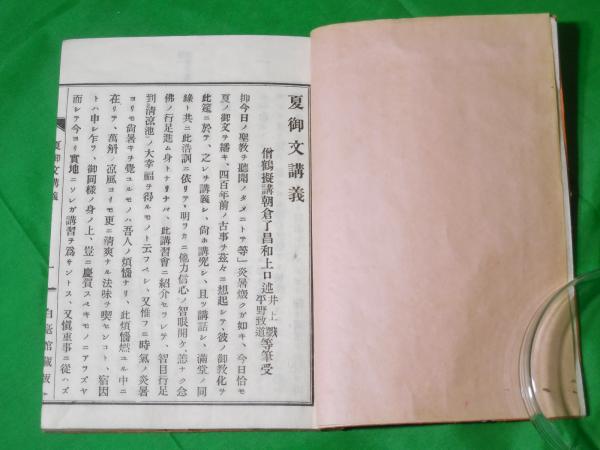 夏御文講義
僧鶴擬講朝倉了昌和上口述
井上戰等筆受
平野致道
抑今日ノ聖敎ヲ聽聞ノタメニトテ等」炎暑燬クガ如キ、今日恰モ
夏ノ御文ヲ繙キ、四百年前ノ古事ヲ茲々ニ想起シテ、彼ノ御敎化ヲ
此筵ニ於テ、之レヲ講義シ、尙ホ講究シ、且ツ講話シ、滿堂ノ同
緣ト共ニ此浩訓ニ依リテ、明ラカニ他力信心ノ智眼開ケ、恙ナク念
佛ノ行足進ム身トナリナバ、此講習會ニ紹介セラレテ、智目行足
到淸凉池ノ大幸福ヲ得ルモノト云フベシ、又惟フニ時氣ノ炎暑
ヨリモ尙暑キヲ覺ユルモノハ吾人ノ煩惱ナリ、此煩惱燃ユル中ニ
在リテ、萬斛ノ凉風ヨリモ更ニ淸爽ナル法味ヲ喫センコト、宿因
トハ申シ乍ラ、御同樣ノ身ノ上、豈ニ慶賀スベキモノニアラズヤ
而シテ今ヨリ實地ニソレガ講習ヲ爲サントス、又愼重事ニ從ハズ
夏御文講義
一
白毫館藏版